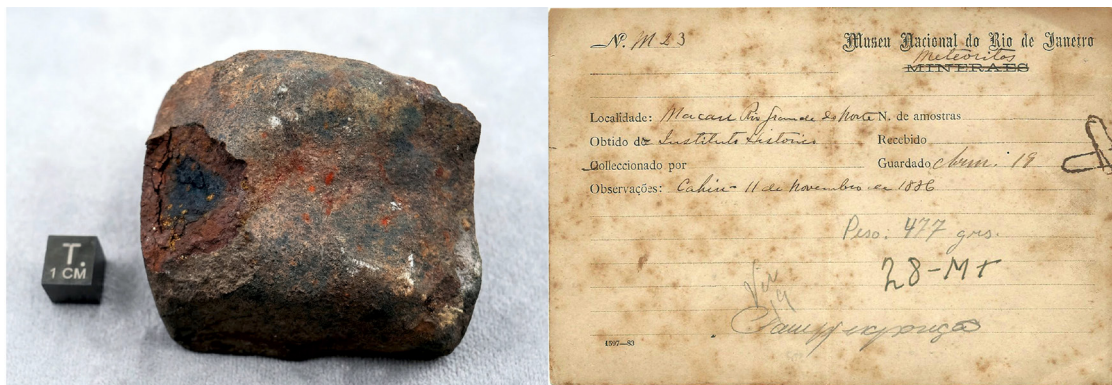 T.
1 CM
N. M 23
Museu Nacional do Rio de Janeiro
Meteoritos
MINERAES
Localidade: Macau Rio Grande do Norte N. de amostras
Obtido de Instituto Historico Recebido
Colleccionado por Guardado Arm. 19
Observações: Cahiu 11 de Novembro de 1836
Peso: 477 grs.
28-Mt
19
1597—83